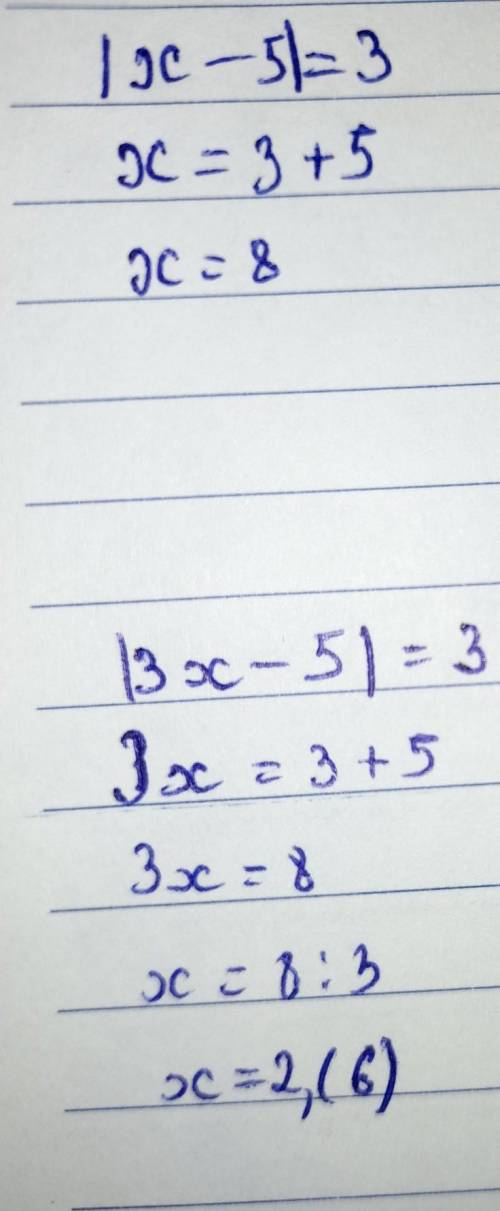 |x - 5| = 3
x = 3 + 5
x = 8
|3x - 5| = 3
3x = 3 + 5
3x = 8
x = 8 : 3
x = 2,(6)